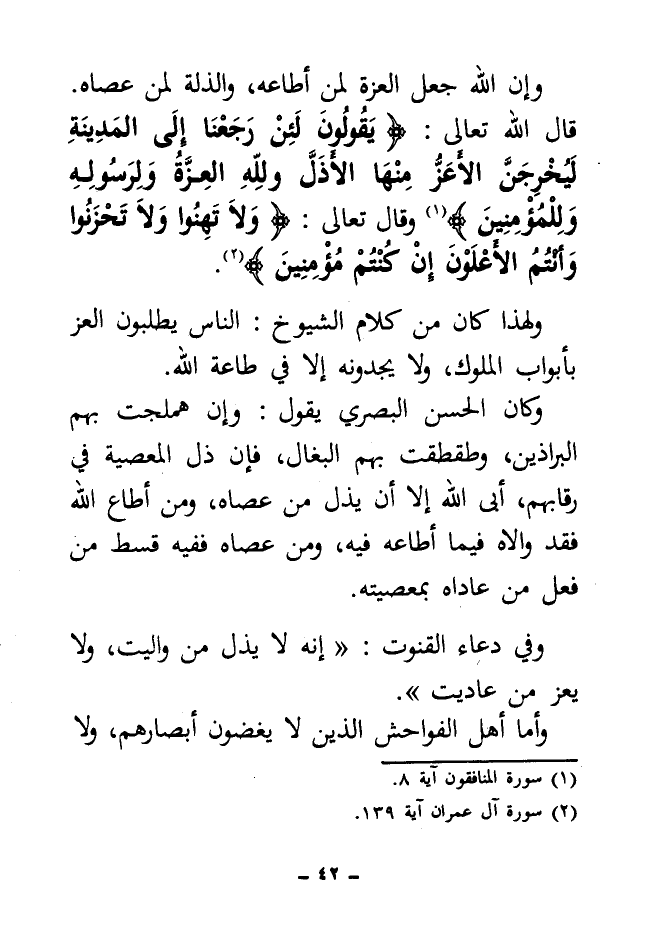 وإن الله جعل العزة لمن أطاعه، والذلة لمن عصاه.
قال الله تعالى : ﴿ يَقُولُونَ لَئِنْ رَجَعْنَا إِلَى المَدِينَةِ
لَيُخْرِجَنَّ الأَعَزُّ مِنْهَا الأَذَلَّ وللهِ العِزَّةُ وَلِرَسُولِهِ
وَلِلْمُؤْمِنِينَ ﴾(١) وقال تعالى : ﴿ وَلاَ تَهِنُوا وَلاَ تَحْزَنُوا
وَأَنْتُمُ الأَعْلَوْنَ إِنْ كُنْتُمْ مُؤْمِنِينَ ﴾(٢).
ولهذا كان من كلام الشيوخ : الناس يطلبون العز
بأبواب الملوك، ولا يجدونه إلا في طاعة الله.
وكان الحسن البصري يقول : وإن هملجت بهم
البراذين، وطقطقت بهم البغال، فإن ذل المعصية في
رقابهم، أبى الله إلا أن يذل من عصاه، ومن أطاع الله
فقد والاه فيما أطاعه فيه، ومن عصاه ففيه قسط من
فعل من عاداه بمعصيته.
وفي دعاء القنوت : « إنه لا يذل من واليت، ولا
يعز من عاديت ».
وأما أهل الفواحش الذين لا يغضون أبصارهم، ولا
(١) سورة المنافقون آية ٨.
(٢) سورة آل عمران آية ١٣٩.
- ٤٢ -